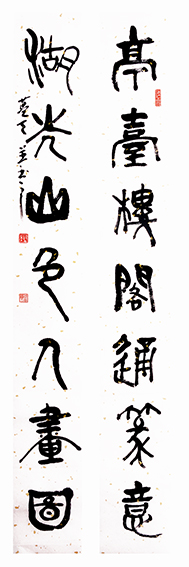 亭臺樓閣通篆意
湖光山色入畫圖